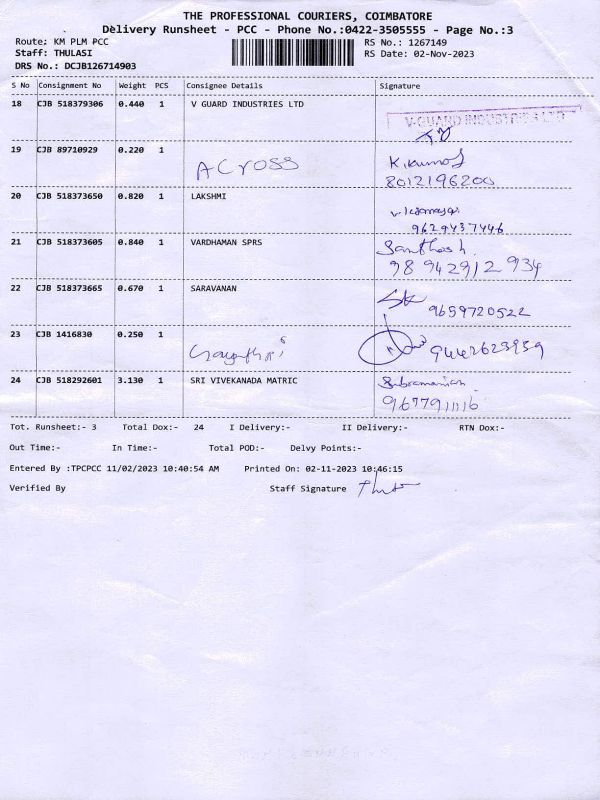 THE PROFESSIONAL COURIERS, COIMBATORE
Delivery Runsheet - PCC - Phone No.:0422-3505555 - Page No.:3
Route: KM PLM PCC RS No.: 1267149
Staff: THULASI RS Date: 02-Nov-2023
DRS No.: DCJB126714903
S No Consignment No Weight PCS Consignee Details Signature
18 CJB 518379306 0.440 1 V GUARD INDUSTRIES LTD
V-GUARD INDUSTRIES LTD
19 CJB 89710929 0.220 1
ACross K.Kumar
8012196200
20 CJB 518373650 0.820 1 LAKSHMI
9629437446
21 CJB 518373605 0.840 1 VARDHAMAN SPRS Santhosh.
98 942912 934
22 CJB 518373665 0.670 1 SARAVANAN
9659720522
23 CJB 1416830 0.250 1
Gayathri 9442623959
24 CJB 518292601 3.130 1 SRI VIVEKANADA MATRIC Subramanian
9677911116
Tot. Runsheet:- 3 Total Dox:- 24 I Delivery:- II Delivery:- RTN Dox:-
Out Time:- In Time:- Total POD:- Delvy Points:-
Entered By :TPCPCC 11/02/2023 10:40:54 AM Printed On: 02-11-2023 10:46:15
Verified By Staff Signature